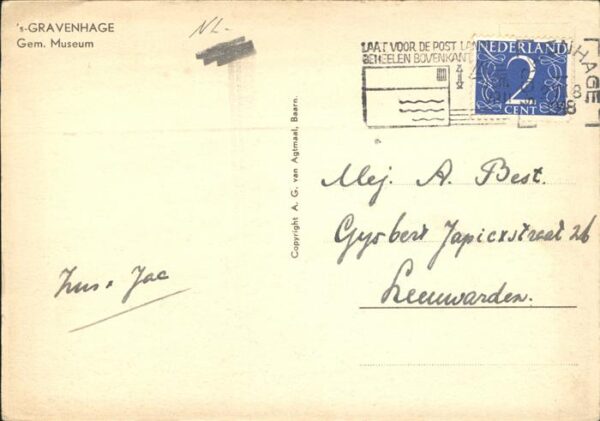 's-GRAVENHAGE
Gem. Museum
NL-
LAAT VOOR DE POST
GEHEELEN BOVENKANT
NEDERLAND
2
CENT
NHAGE
Copyright A. G. van Agtmaal, Baarn.
Mej. A. Best.
Gysbert Japicxstraat 26
Leeuwarden.
Zus + Jac